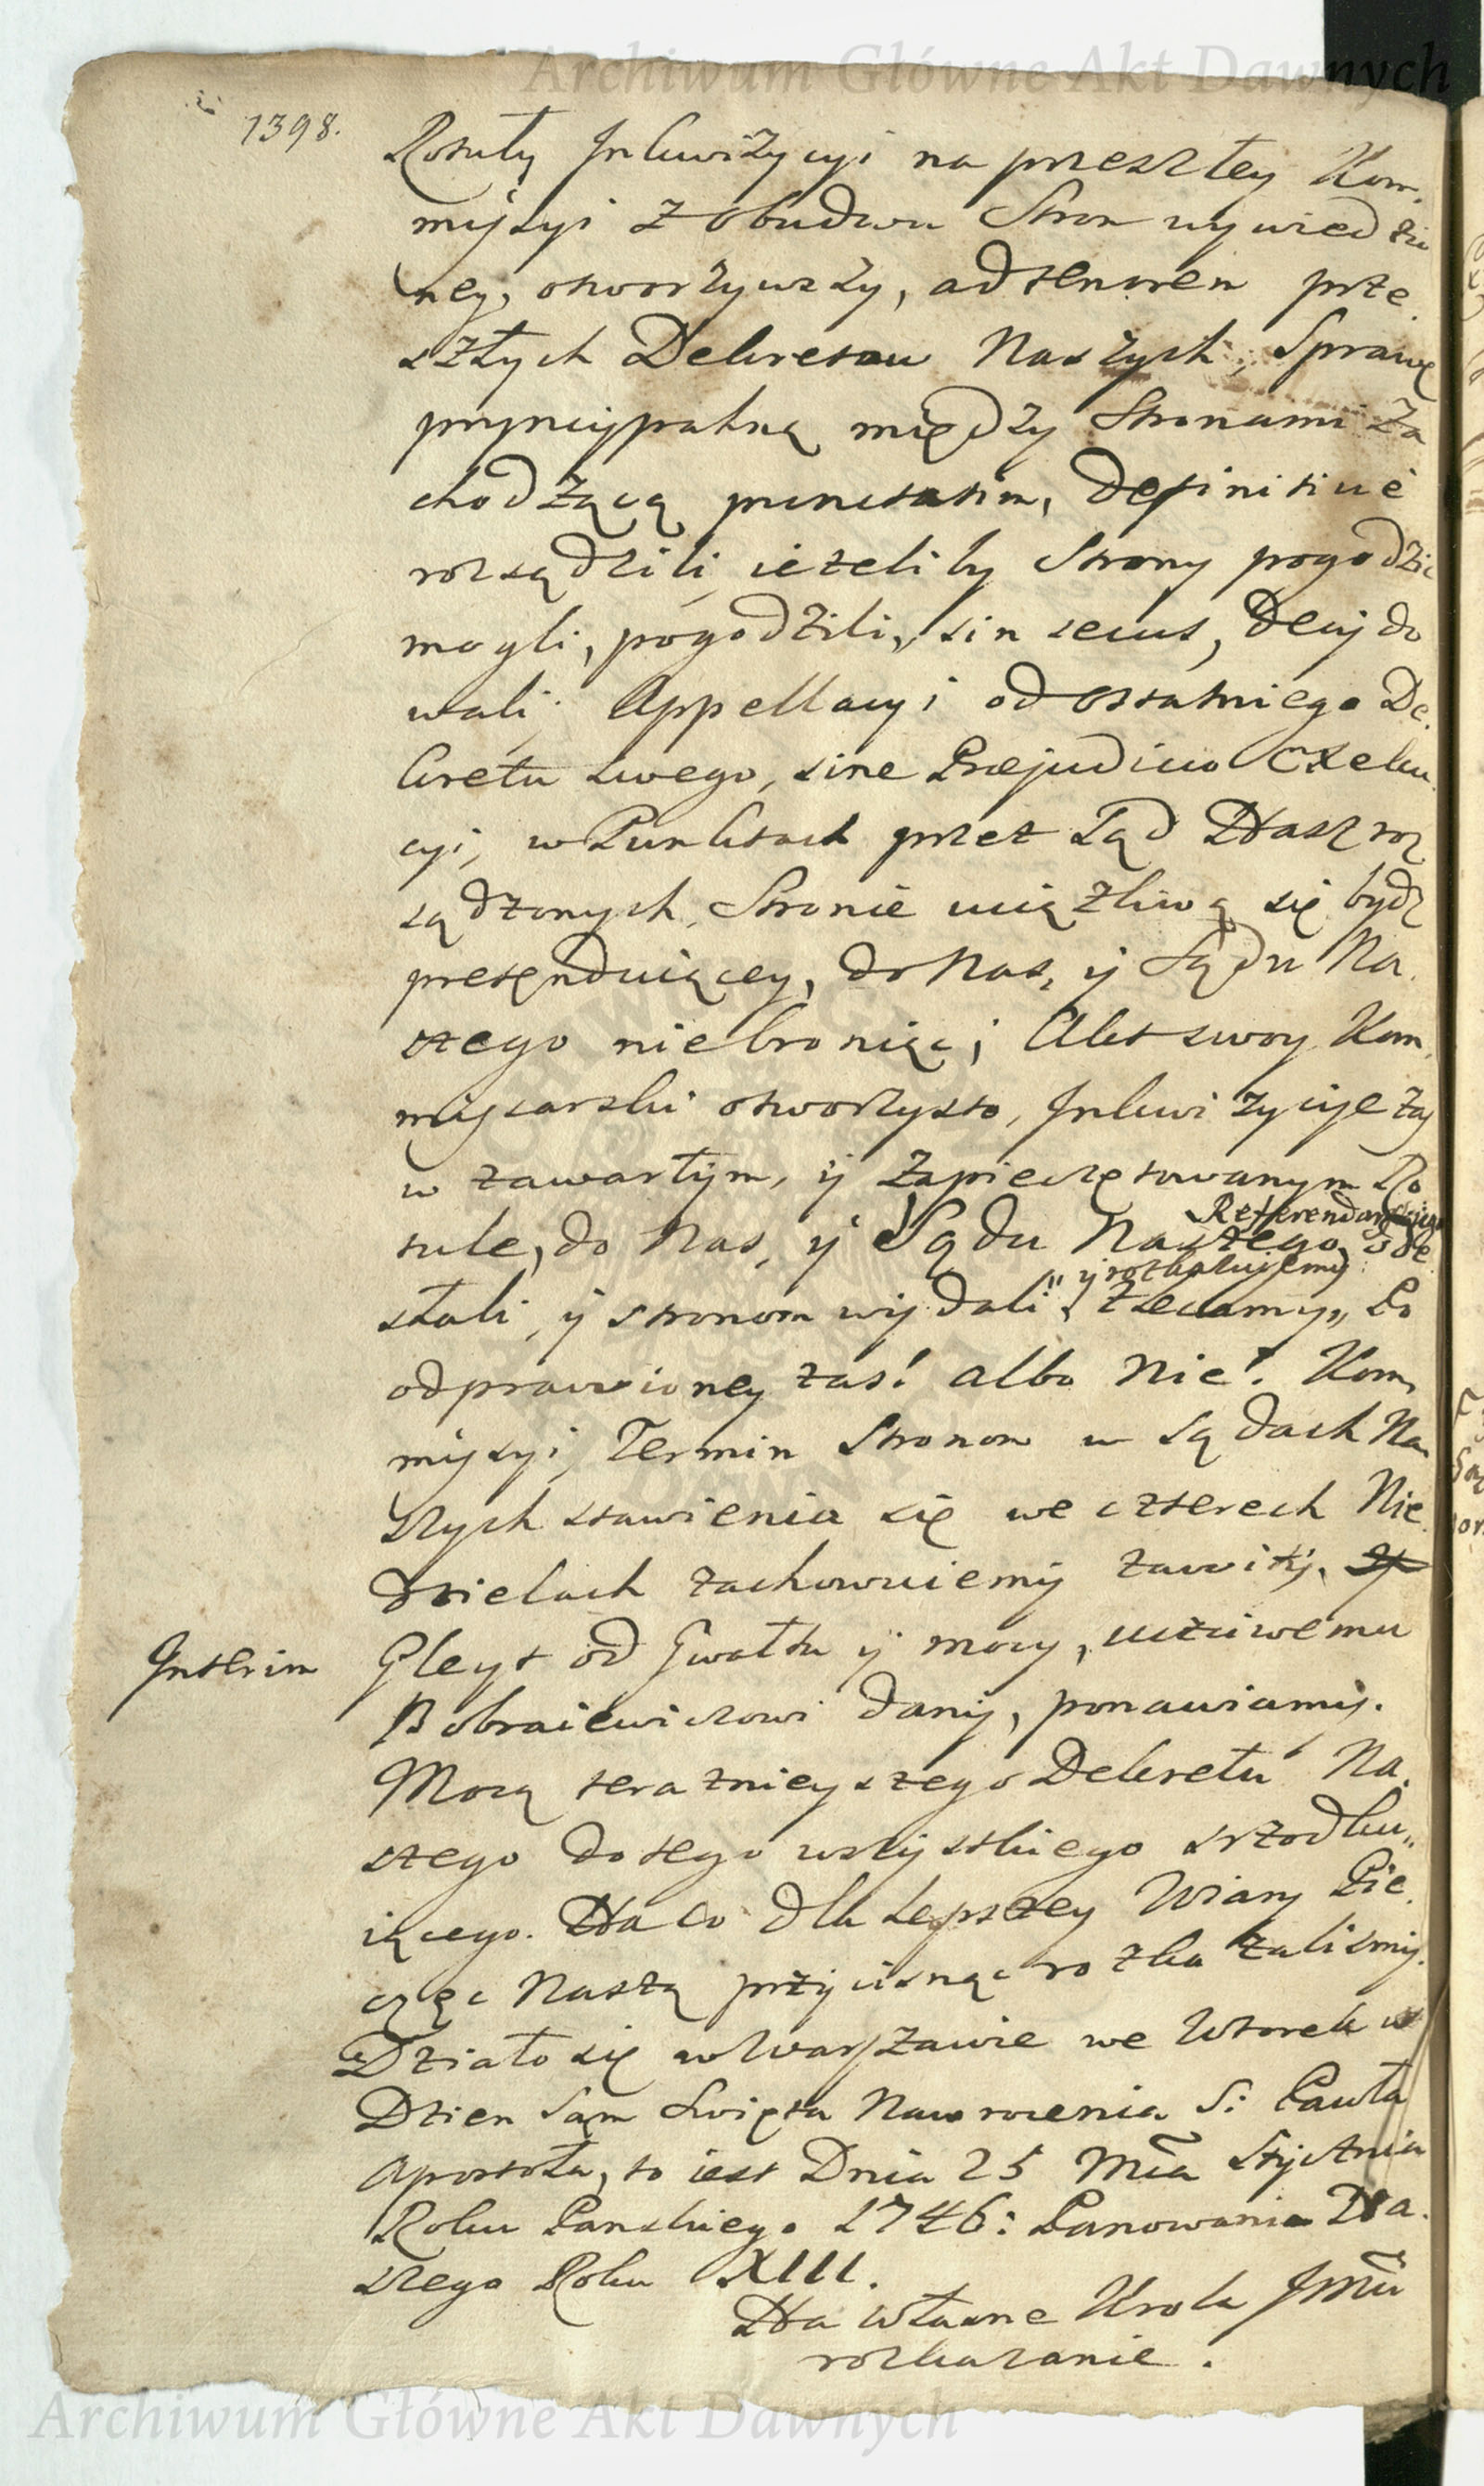 Archiwum Główne Akt Dawnych
1398.
Rotuły Inkwizycyi na przeszłey Kom,
mysyi z obudwu Stron wywiedzio
ney, otworzywszy, ad tenorem prze.
szłych Dekretow Naszych, Sprawę
pryncypalną między Stronami za
chodzącą punctatim, definitive
rozsądzili, ieżeliby Strony pogodzic
mogli, pogodzili, sin secus, Decydo
wali; Appellacyi od ostatniego De.
kretu swego, sine Præjudicio Exeku
cyi, w Punktach przez Sąd Nasz roz
sądzonych, Stronie uciążliwą się bydz
pretęnduiącey, do Nas, y Sądu Na.
szego niebroniąc; Akt swoy Kom,
mysarski otworzysto, Inkwizycye zaś
w zawartym, y zapieczętowanym Ro
tule, do Nas, y Sądu Naszego Referendarskiego ode
słali, y stronom wydali, zlecamy y rozkazujemy,, Po
odprawioney zas! albo Nie! Kom,
mysyi, Termin Stronom w Sądach Na
szych stawienia się we czterech Nie
dzielach zachowuiemy zawity.
Interim
Gleyt od Gwałtu y mocy, uczciwemu
Bobraiewiczowi dany, ponawiamy.
Mocą teraznieyszego Dekretu Na.
szego do tego wszystkiego srzodku,,
iącego. Na co dla Lepszey Wiary Pie.
częc Naszą przycisnąc rozkazalismy.
Działo się w Warszawie we Wtorek w
Dzien sąm Swięta Nawrocenia S: Pawła
Apostoła, to iest Dnia 25 Mca Stycznia
Roku Panskiego 1746: Panowania Na.
szego Roku XIII.
Na własne Krola JMci
rozkazanie.
Archiwum Główne Akt Dawnych